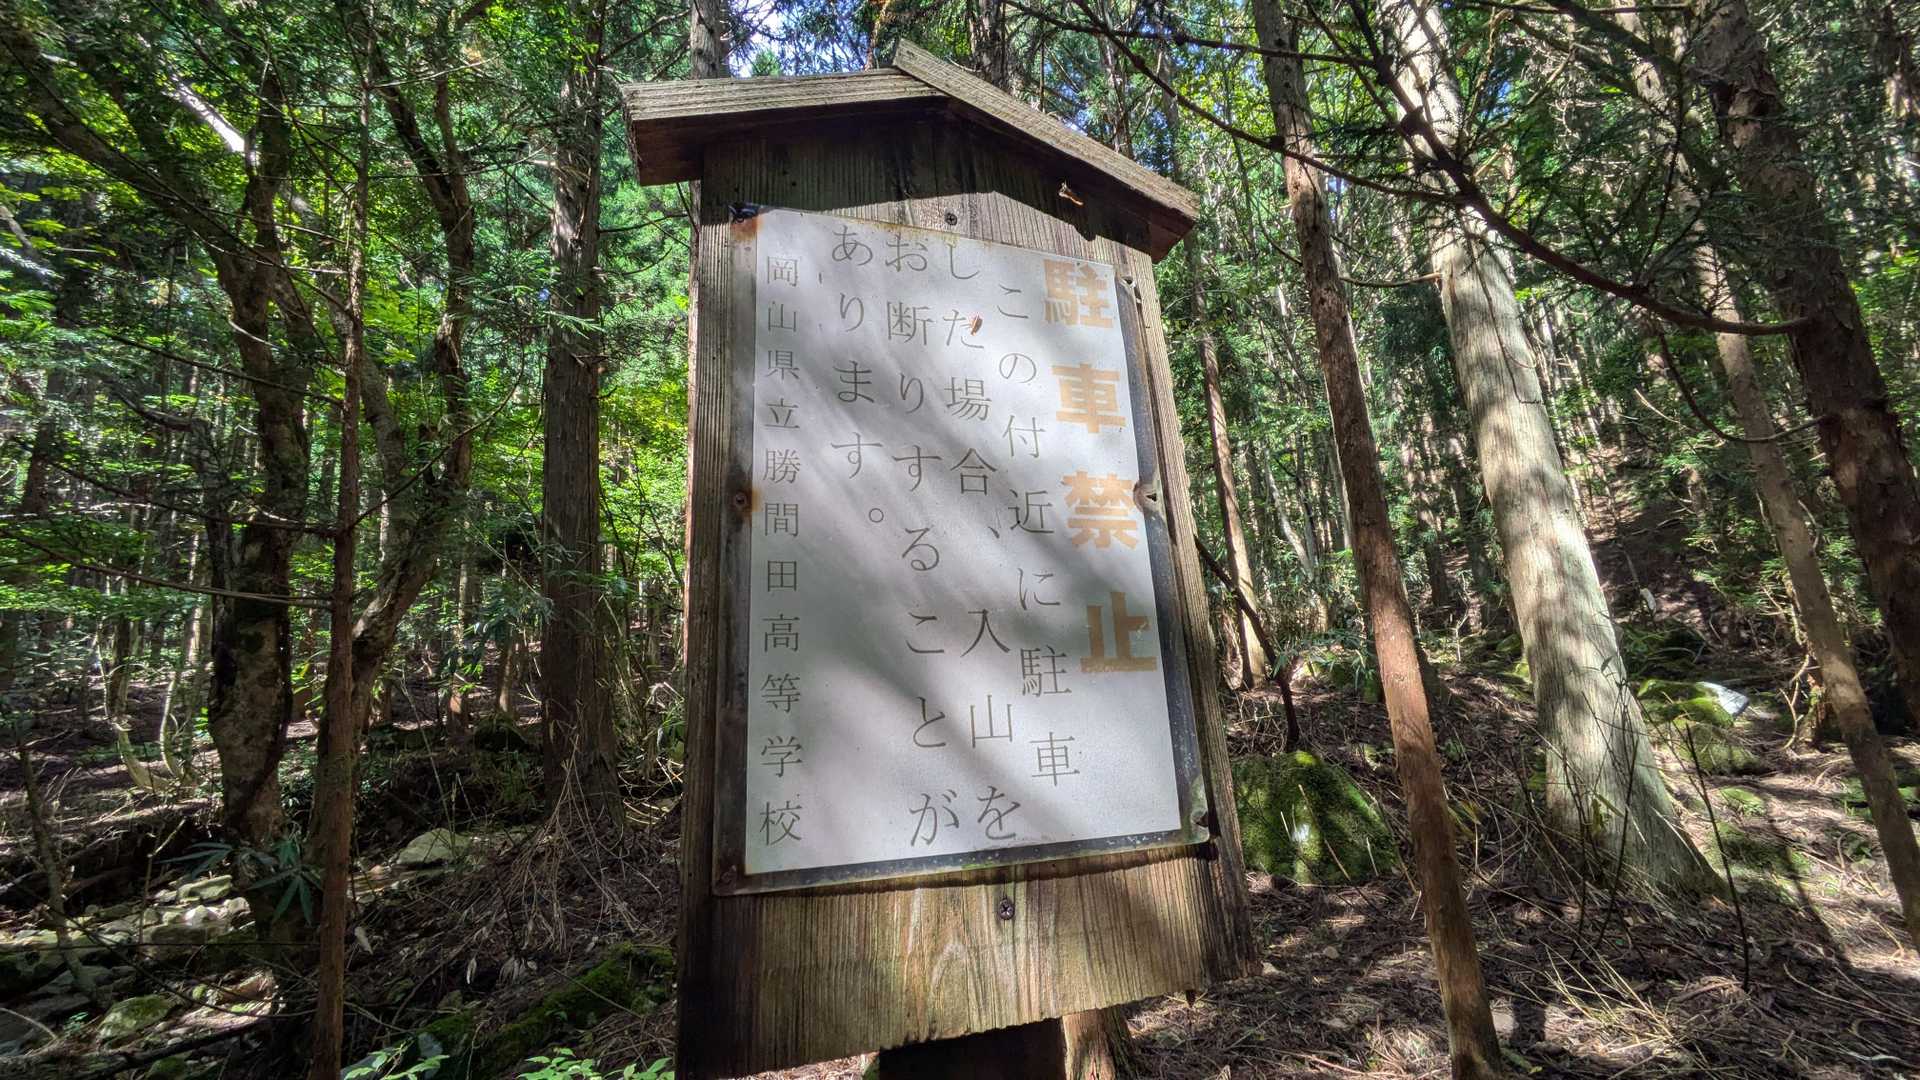 駐車禁止
この付近に駐車
した場合、入山を
お断りすることが
あります。
岡山県立勝間田高等学校